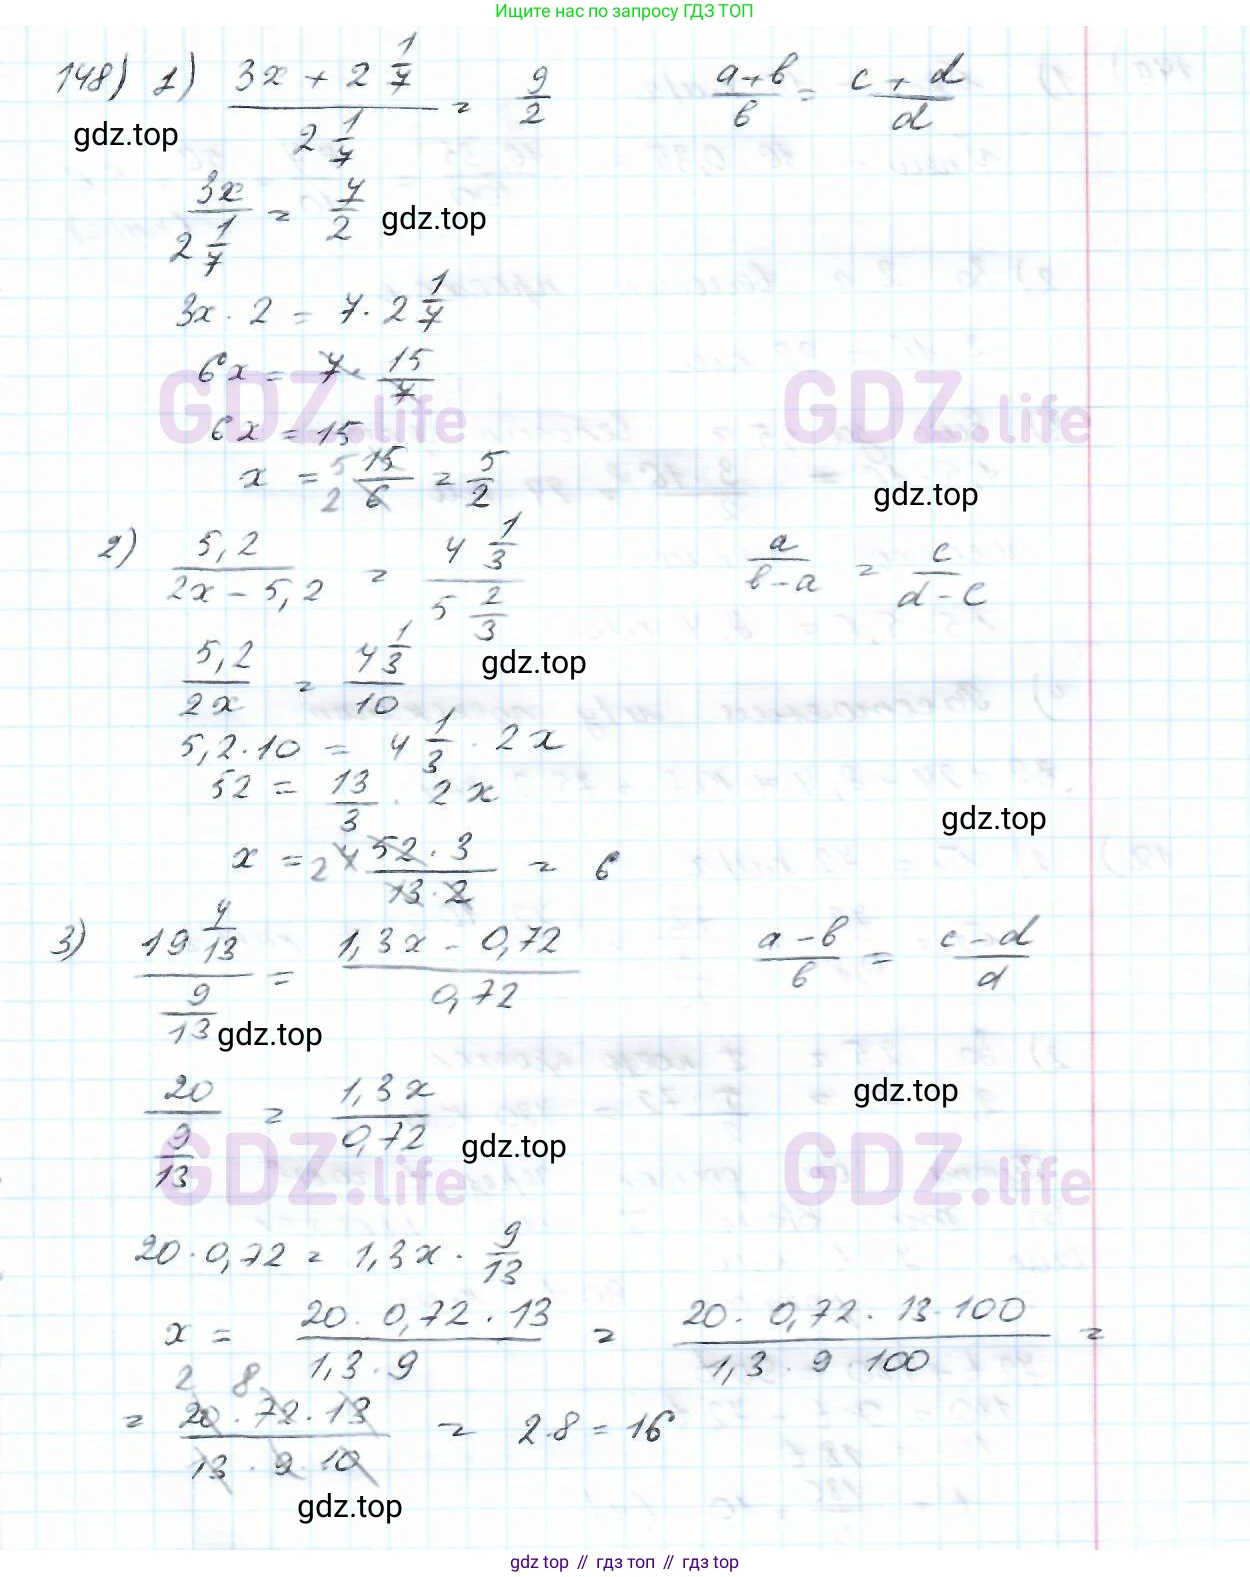 Ищите нас по запросу ГДЗ ТОП
148) 1) (3x + 2 1/7) / (2 1/7) = 9/2    (a+b)/b = (c+d)/d
gdz.top
3x / (2 1/7) = 7/2
gdz.top
3x · 2 = 7 · 2 1/7
6x = 7 · 15/7
GDZ.life GDZ.life
6x = 15
x = 15/6 = 5/2
5 2
gdz.top
2) 5,2 / (2x – 5,2) = (4 1/3) / (5 2/3)    a/(b-a) = c/(d-c)
5,2 / 2x = (4 1/3) / 10
gdz.top
5,2 · 10 = 4 1/3 · 2x
52 = 13/3 · 2x
gdz.top
x = 2 4 (52 · 3)/(13 · 2) = 6
3) (19 4/13) / (9/13) = (1,3x - 0,72) / 0,72    (a-b)/b = (c-d)/d
gdz.top
20 / (9/13) = 1,3x / 0,72
gdz.top
gdz.top
GDZ.life GDZ.life
20 · 0,72 = 1,3x · 9/13
x = (20 · 0,72 · 13)/(1,3 · 9) = (20 · 0,72 · 13 · 100)/(1,3 · 9 · 100) =
2 8
= (20 · 72 · 13)/(13 · 9 · 10) = 2·8 = 16
gdz.top
gdz top // гдз топ // гдз top